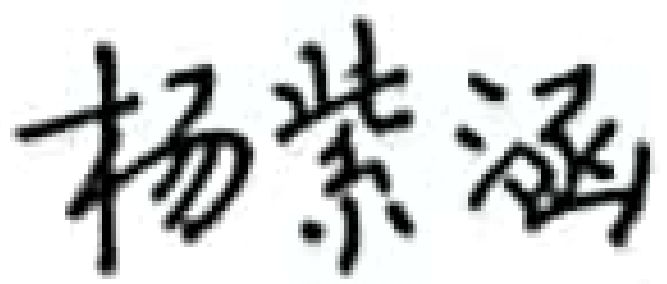 杨紫涵